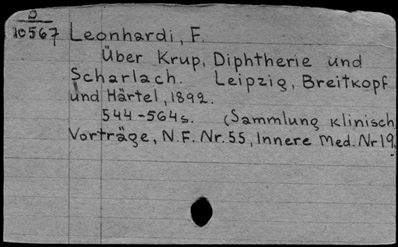 D
10567 Leonhardi, F.
Über Krup, Diphtherie und
Scharlach. Leipzig, Breitkopf
und Härtel, 1892.
544-564s. (Sammlung klinisch
Vorträge, N.F. Nr. 55, Innere Med. Nr 19.